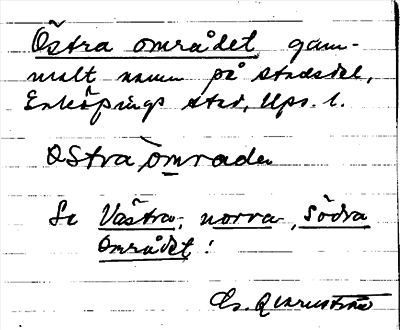 Östra området gam-
malt namn på stadsdel,
Enköpings stad, Ups. l.
Östra områden
Se Västra, norra, södra
området!